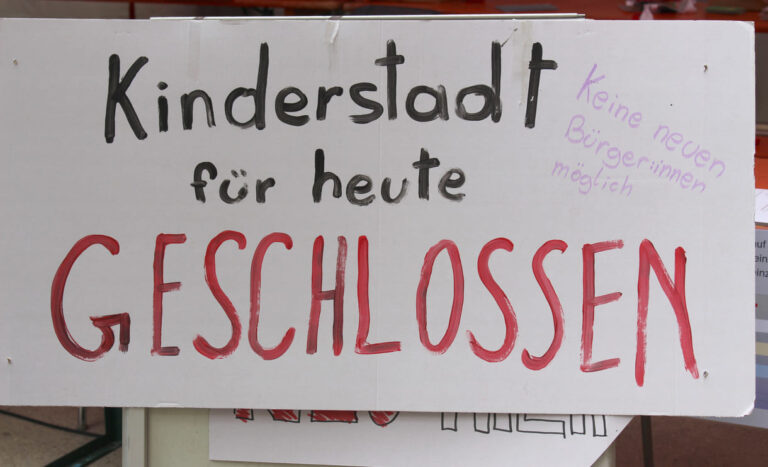 Kinderstadt
für heute
GESCHLOSSEN
Keine neuen
Bürger:innen
möglich